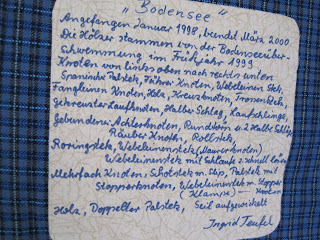 „Bodensee"
Angefangen Januar 1998, beendet März 2000
Die Hölzer stammen von der Bodenseeüber-
schwemmung im Frühjahr 1999
Knoten von links oben nach rechts unten
Spanischer Palstek, Füherer Knoten, Webeleinen Stek,
Fangleinen Knoten, Holz, Kreuzknoten, Trossenstek,
Gekreuzter Laufknoten, Halber Schlag, Laufschlinge,
Gebundener Achterknoten, Rundtörn u. 2 Halbe Schläge
Räuber Knoten, Rollstek,
Roringstek, Webeleinenstek (Maurerknoten)
Webeleinenstek mit Schlaufe z. schnell lösen
Mehrfach Knoten, Schotstek m. Slip, Palstek mit
Stopperknoten, Webeleinenstek m. Stopper
(Klampe)
Holz, Doppelter Palstek, Seil aufgewickelt
Ingrid Teufel